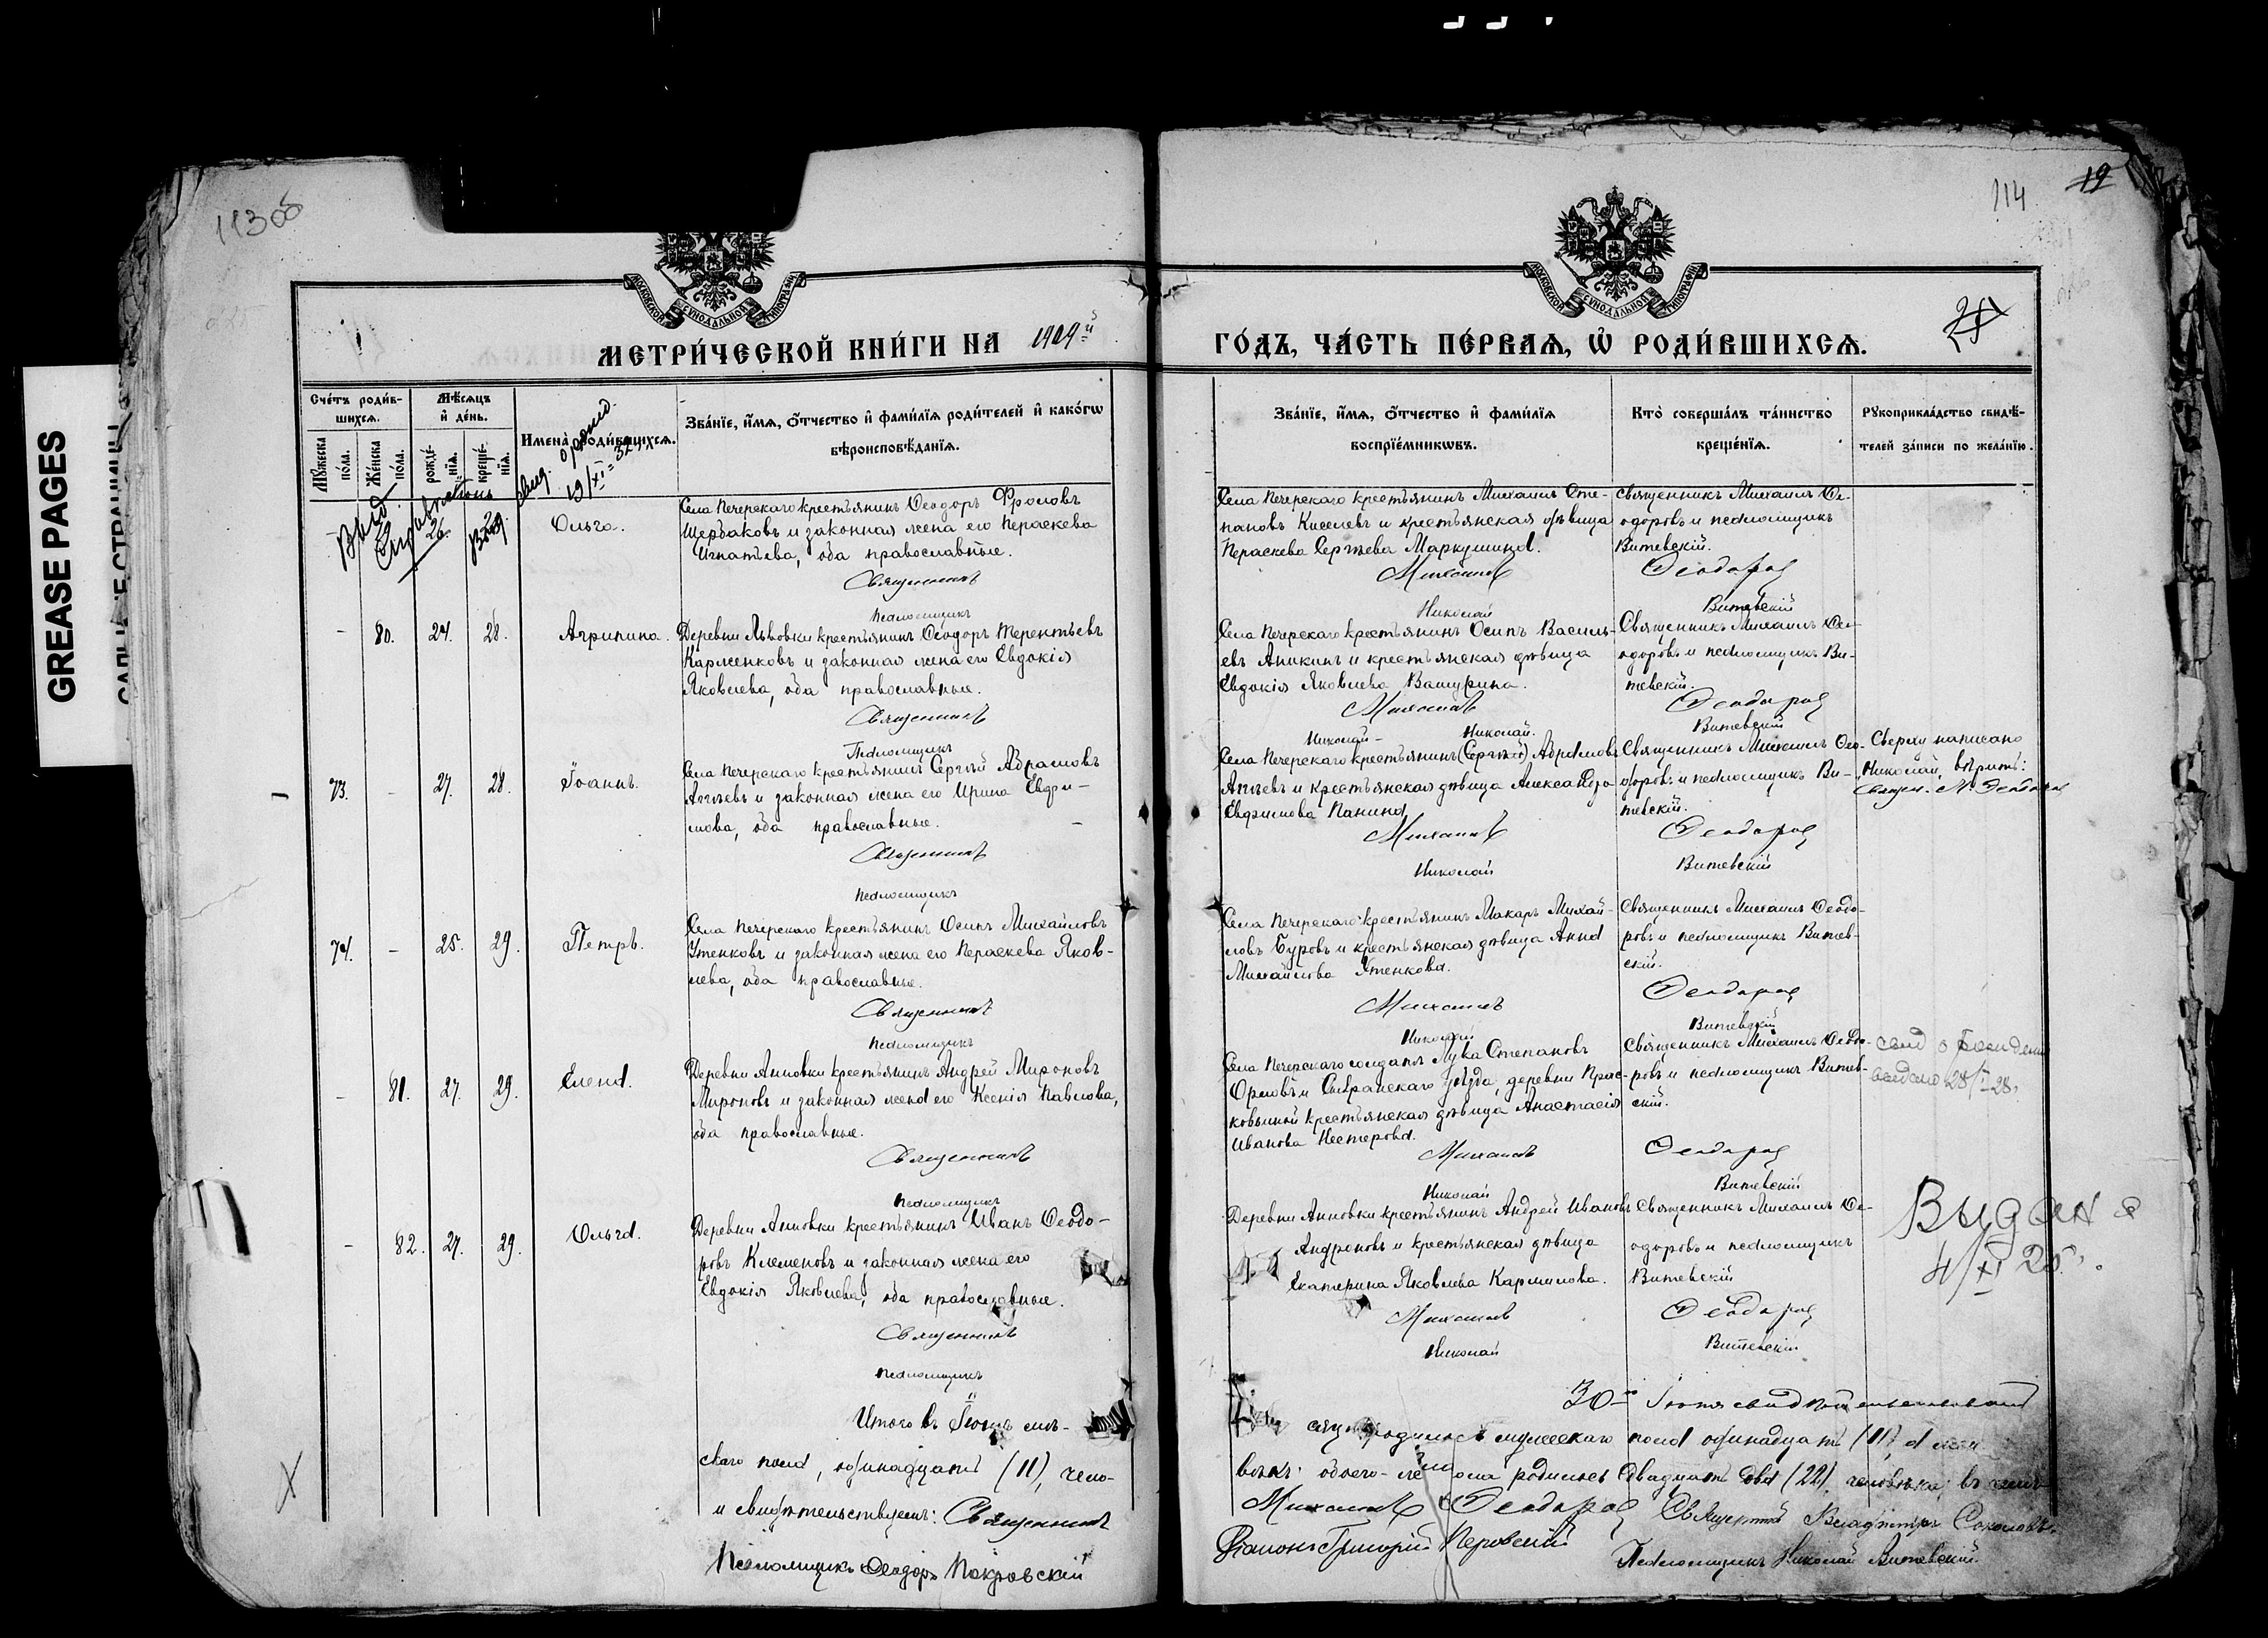 GREASE PAGES
113об
114
19
МОСКОВСКОЙ СѴНОДАЛЬНОЙ ТИПОГРАФІИ
МОСКОВСКОЙ СѴНОДАЛЬНОЙ ТИПОГРАФІИ
МЕТРИ́ЧЕСКОЙ КНИ́ГИ НА 1909й
ГО́ДЪ, ЧА́СТЬ ПЕ́РВАѦ, Ѡ҆ РОДИ́ВШИХСѦ.
Сче́тъ роди́в-
шихсѧ.
Мꙋ́жеска по́ла.
Же́нска по́ла.
Мѣ́сѧцъ
и҆ де́нь.
рожде́-нїѧ.
креще́-нїѧ.
И҆мена̀ роди́вшихсѧ.
Зва́нїе, и҆́мѧ, о҆́тчество и҆ фами́лїѧ роди́телей и҆ како́гѡ
вѣроисповѣ́данїѧ.
Зва́нїе, и҆́мѧ, о҆́тчество и҆ фами́лїѧ
воспрїе́мникѡвъ.
Кто̀ соверша́лъ та́инство
креще́нїѧ.
Рꙋкоприкла́дство свидѣ́-
телей за́писи по жела́нїю.
26.
Ольга.
Села Печерскаго крестьянинъ Ѳеодоръ Фроловъ
Щербаковъ и законная жена его Параскева
Игнатьева, оба православные.
Священникъ
Псаломщикъ
Села Печерскаго крестьянинъ Михаилъ Сте-
пановъ Киселевъ и крестьянская дѣвица
Параскева Сергѣева
Михаилъ
Николай
Священникъ Михаилъ Ѳе-
одоровъ и псаломщикъ
Витевскій.
Ѳеодоровъ
Витевскій
- 80. 24. 28. Агрипина.
Деревни Львовки крестьянинъ Ѳеодоръ Терентьевъ
Карженковъ и законная жена его Евдокія
Яковлева, оба православные.
Священникъ
Псаломщикъ
Села Печерскаго крестьянинъ Осипъ Василь-
евъ Аникинъ и крестьянская дѣвица
Евдокія Яковлева Вашурина.
Михаилъ
Николай
Священникъ Михаилъ Ѳе-
одоровъ и псаломщикъ Ви-
тевскій.
Ѳеодоровъ
Витевскій
73. - 27. 28. Іоаннъ.
Села Печерскаго крестьянинъ Сергѣй Абрамовъ
Агѣевъ и законная жена его Ирина Евфи-
мова, оба православные.
Священникъ
Псаломщикъ
Николай.
Села Печерскаго крестьянинъ (Сергѣй) Абрамовъ
Агѣевъ и крестьянская дѣвица Александра
Евфимова Панина
Михаилъ
Николай
Священникъ Михаилъ Ѳео-
доровъ и псаломщикъ Ви-
тевскій.
Ѳеодоровъ
Витевскій
Сверху написано
„Николай„ вѣрить:
Священ. М. Ѳеодоровъ
74. - 25. 29. Петръ.
Села Печерскаго крестьянинъ Осипъ Михайловъ
Утенковъ и законная жена его Параскева Яков-
лева, оба православные.
Священникъ
Псаломщикъ
Села Печерскаго крестьянинъ Макаръ Михай-
ловъ Буровъ и крестьянская дѣвица Анна
Михайлова Утенкова.
Михаилъ
Николай
Священникъ Михаилъ Ѳеодо-
ровъ и псаломщикъ Витев-
скій.
Ѳеодоровъ
Витевскій
- 81. 27. 29. Елена.
Деревни Анновки крестьянинъ Андрей Мироновъ
Мироновъ и законная жена его Ксенія Павлова,
оба православные.
Священникъ
Псаломщикъ
Села Печерскаго солдатъ Лука Степановъ
Орловъ и Сызранскаго уѣзда, деревни Прас-
ковьиной крестьянская дѣвица Анастасія
Иванова Нестерова.
Михаилъ
Николай
Священникъ Михаилъ Ѳеодо-
ровъ и псаломщикъ Витев-
скій.
Ѳеодоровъ
Витевскій
- 82. 27. 29. Ольга.
Деревни Анновки крестьянинъ Иванъ Ѳеодо-
ровъ Клеменовъ и законная жена его
Евдокія Яковлева, оба православные.
Священникъ
Псаломщикъ
Деревни Анновки крестьянинъ Андрей Ивановъ
Андроновъ и крестьянская дѣвица
Екатерина Яковлева Кармилова.
Михаилъ
Николай
Священникъ Михаилъ Ѳе-
одоровъ и псаломщикъ
Витевскій
Ѳеодоровъ
Витевскій
Выдана
4/XI 25.
Итого въ Іюнѣ мѣ-
сяцѣ родилось мужескаго пола одинадцать (11), а жен-
скаго пола, одинадцать (11), чело-
вѣкъ: обоего-же пола родилось двадцать два (22) человѣка; въ чемъ
и свидѣтельствуемъ: Священникъ
Михаилъ Ѳеодоровъ Священникъ Владиміръ Соколовъ
Діаконъ Григорій Перовскій
Псаломщикъ Ѳеодоръ Покровскій
Псаломщикъ Николай Витевскій